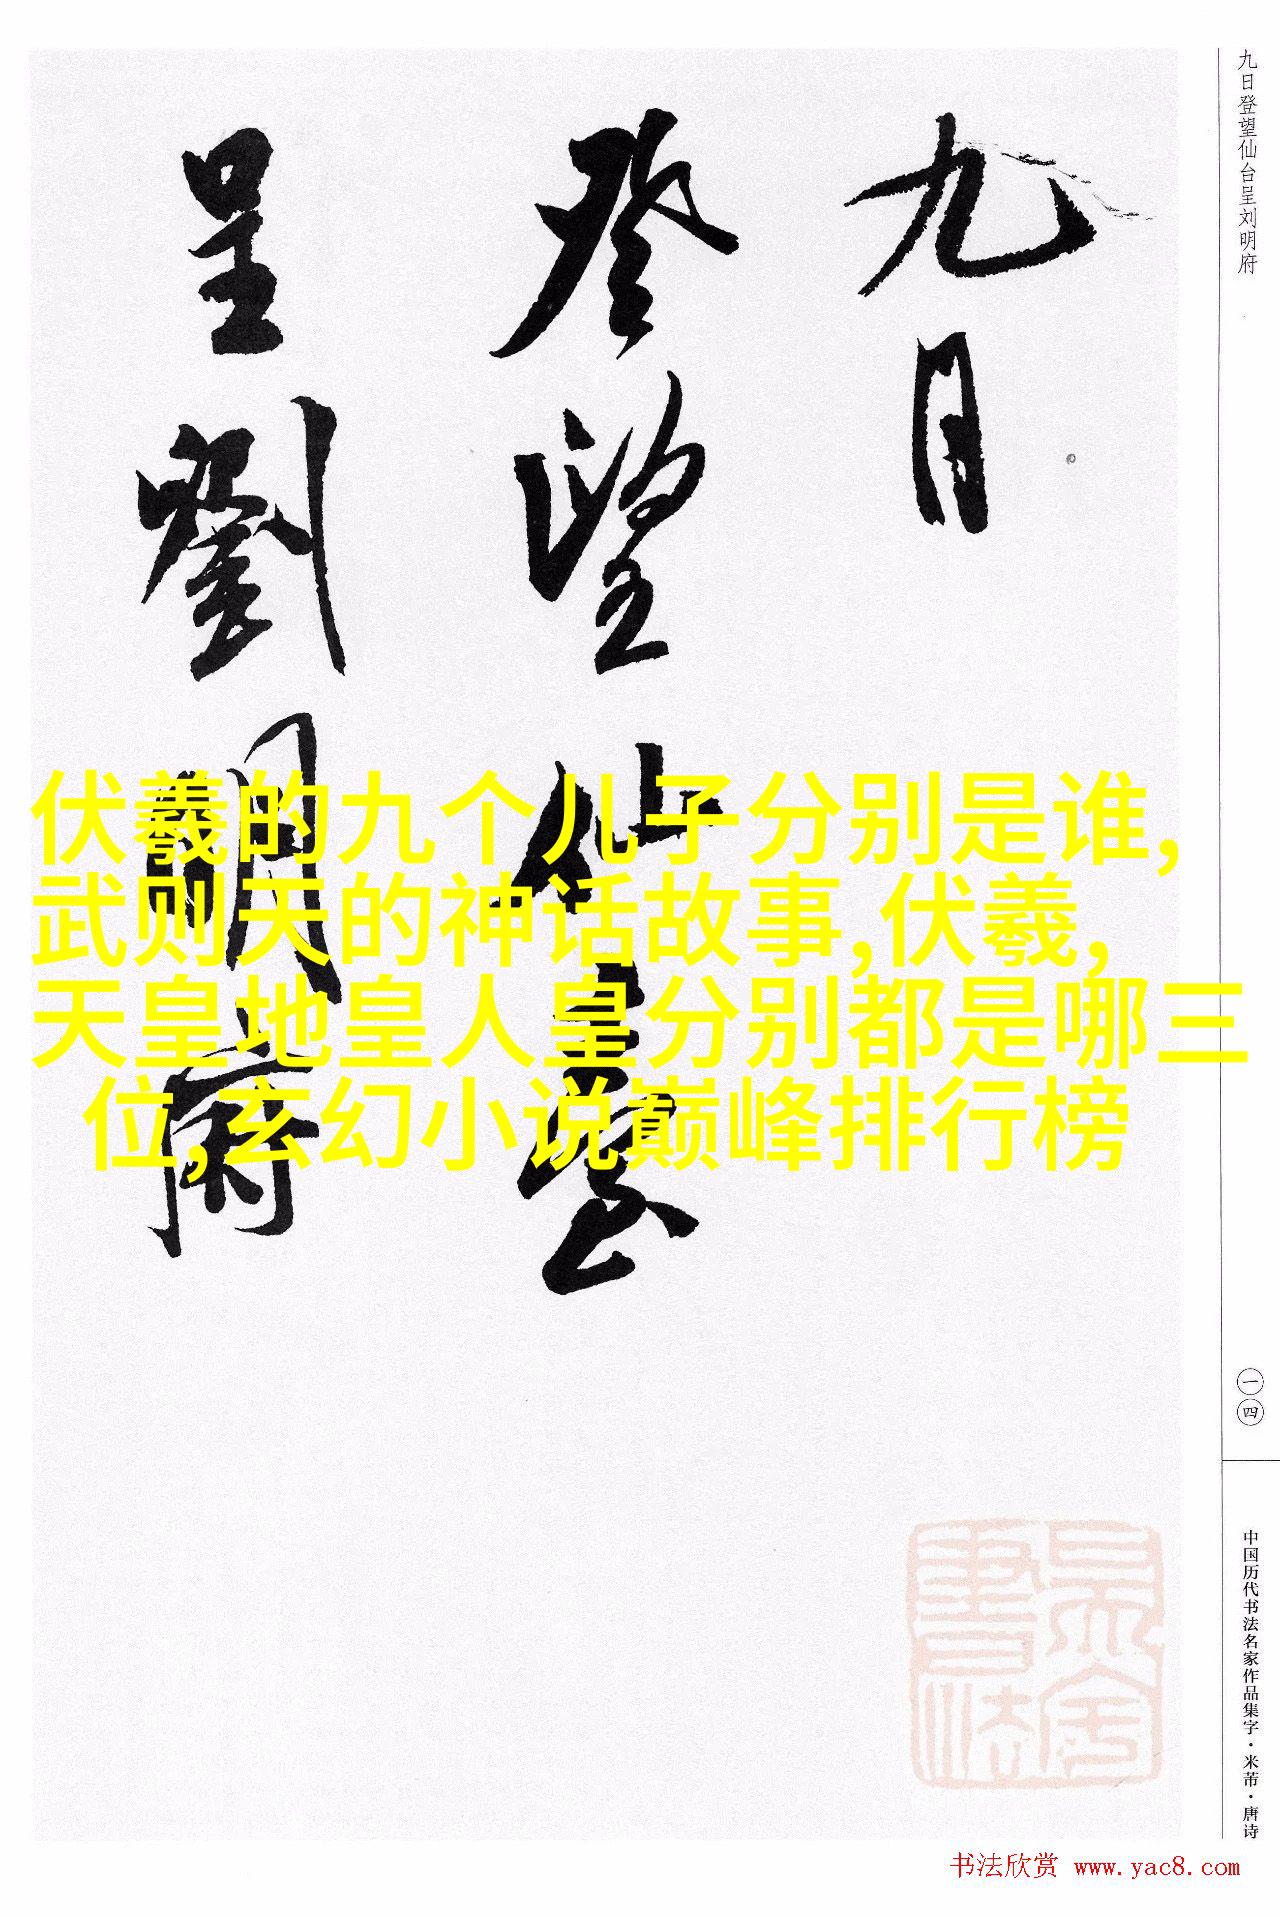 九日
登望仙臺
呈劉明府
九日登望仙台呈刘明府
一四
中国历代书法名家作品集字·米芾·唐诗
伏羲的九个儿子分别是谁,
武则天的神话故事,伏羲,
天皇地皇人皇分别都是哪三
位,玄幻小说巅峰排行榜
书法欣赏 www.yac8.com